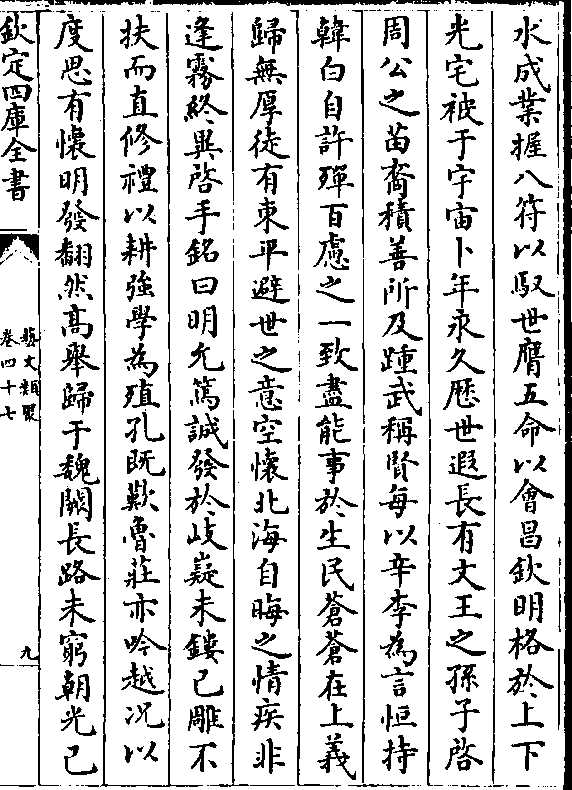 水成業握八符以馭世膺五命以會昌欽明格於上下
光宅被于宇宙卜年永久歴世遐長有文王之孫子啓
周公之苗裔積善所及踵武稱賢每以辛李為言恒持
韓白自許殫百慮之一致盡能事於生民蒼蒼在上義
歸無厚徒有東平避世之意空懐北海自晦之情疾非
逢霧終異啓手銘曰明允篤誠發於岐嶷未鏤已雕不
扶而直修禮以耕強學為殖孔既歎魯莊亦吟越况以
度思有懐明發翻然高舉歸于魏闕長路未窮朝光已
欽定四庫全書
藝文類聚
卷四十七
九